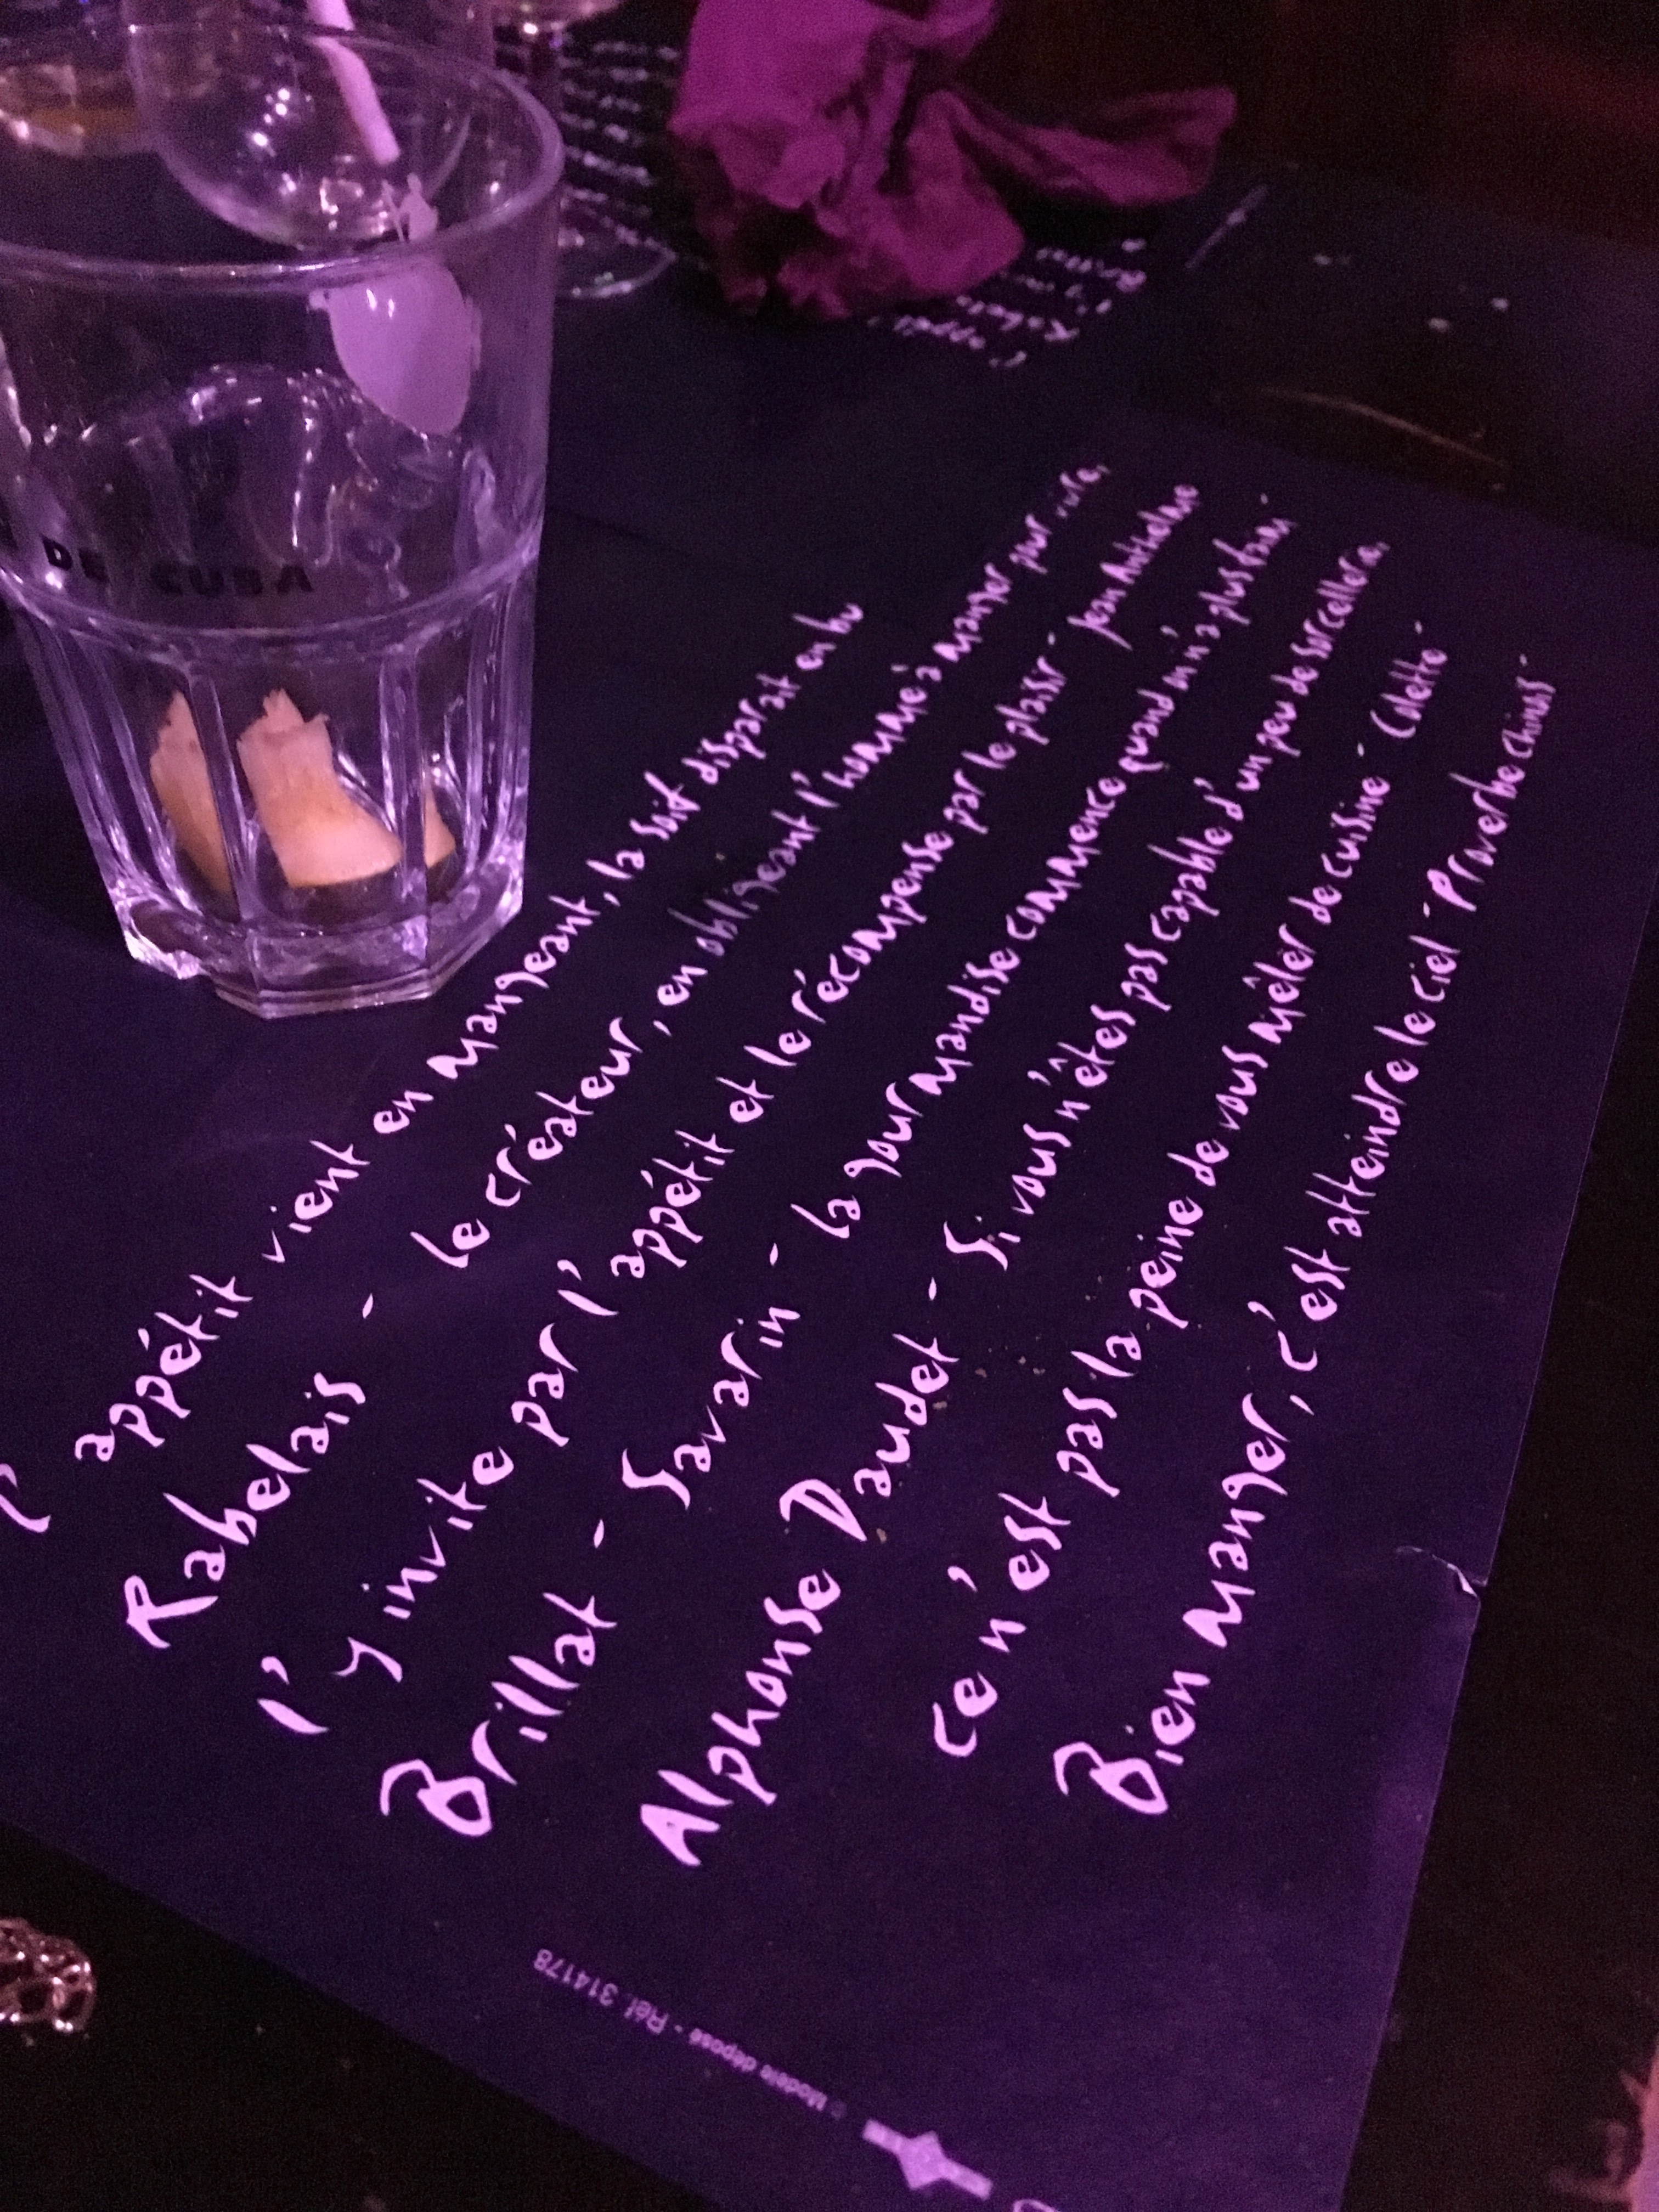 DE CUBA
l'appétit vient en mangeant, la soit disparait en bu
Rabelais - le créateur, en obligeant l'homme à manger pour vivre,
l'y invite par l'appétit et le récompense par le plaisir - Jean Anthelme
Brillat - Savarin - la gourmandise commence quand on n'a plus faim -
Alphonse Daudet - Si vous n'êtes pas capable d'un peu de sorcellerie,
ce n'est pas la peine de vous mêler de cuisine - Colette -
Bien manger, c'est atteindre le ciel - Proverbe chinois -
© Modèle déposé - Réf. 314178